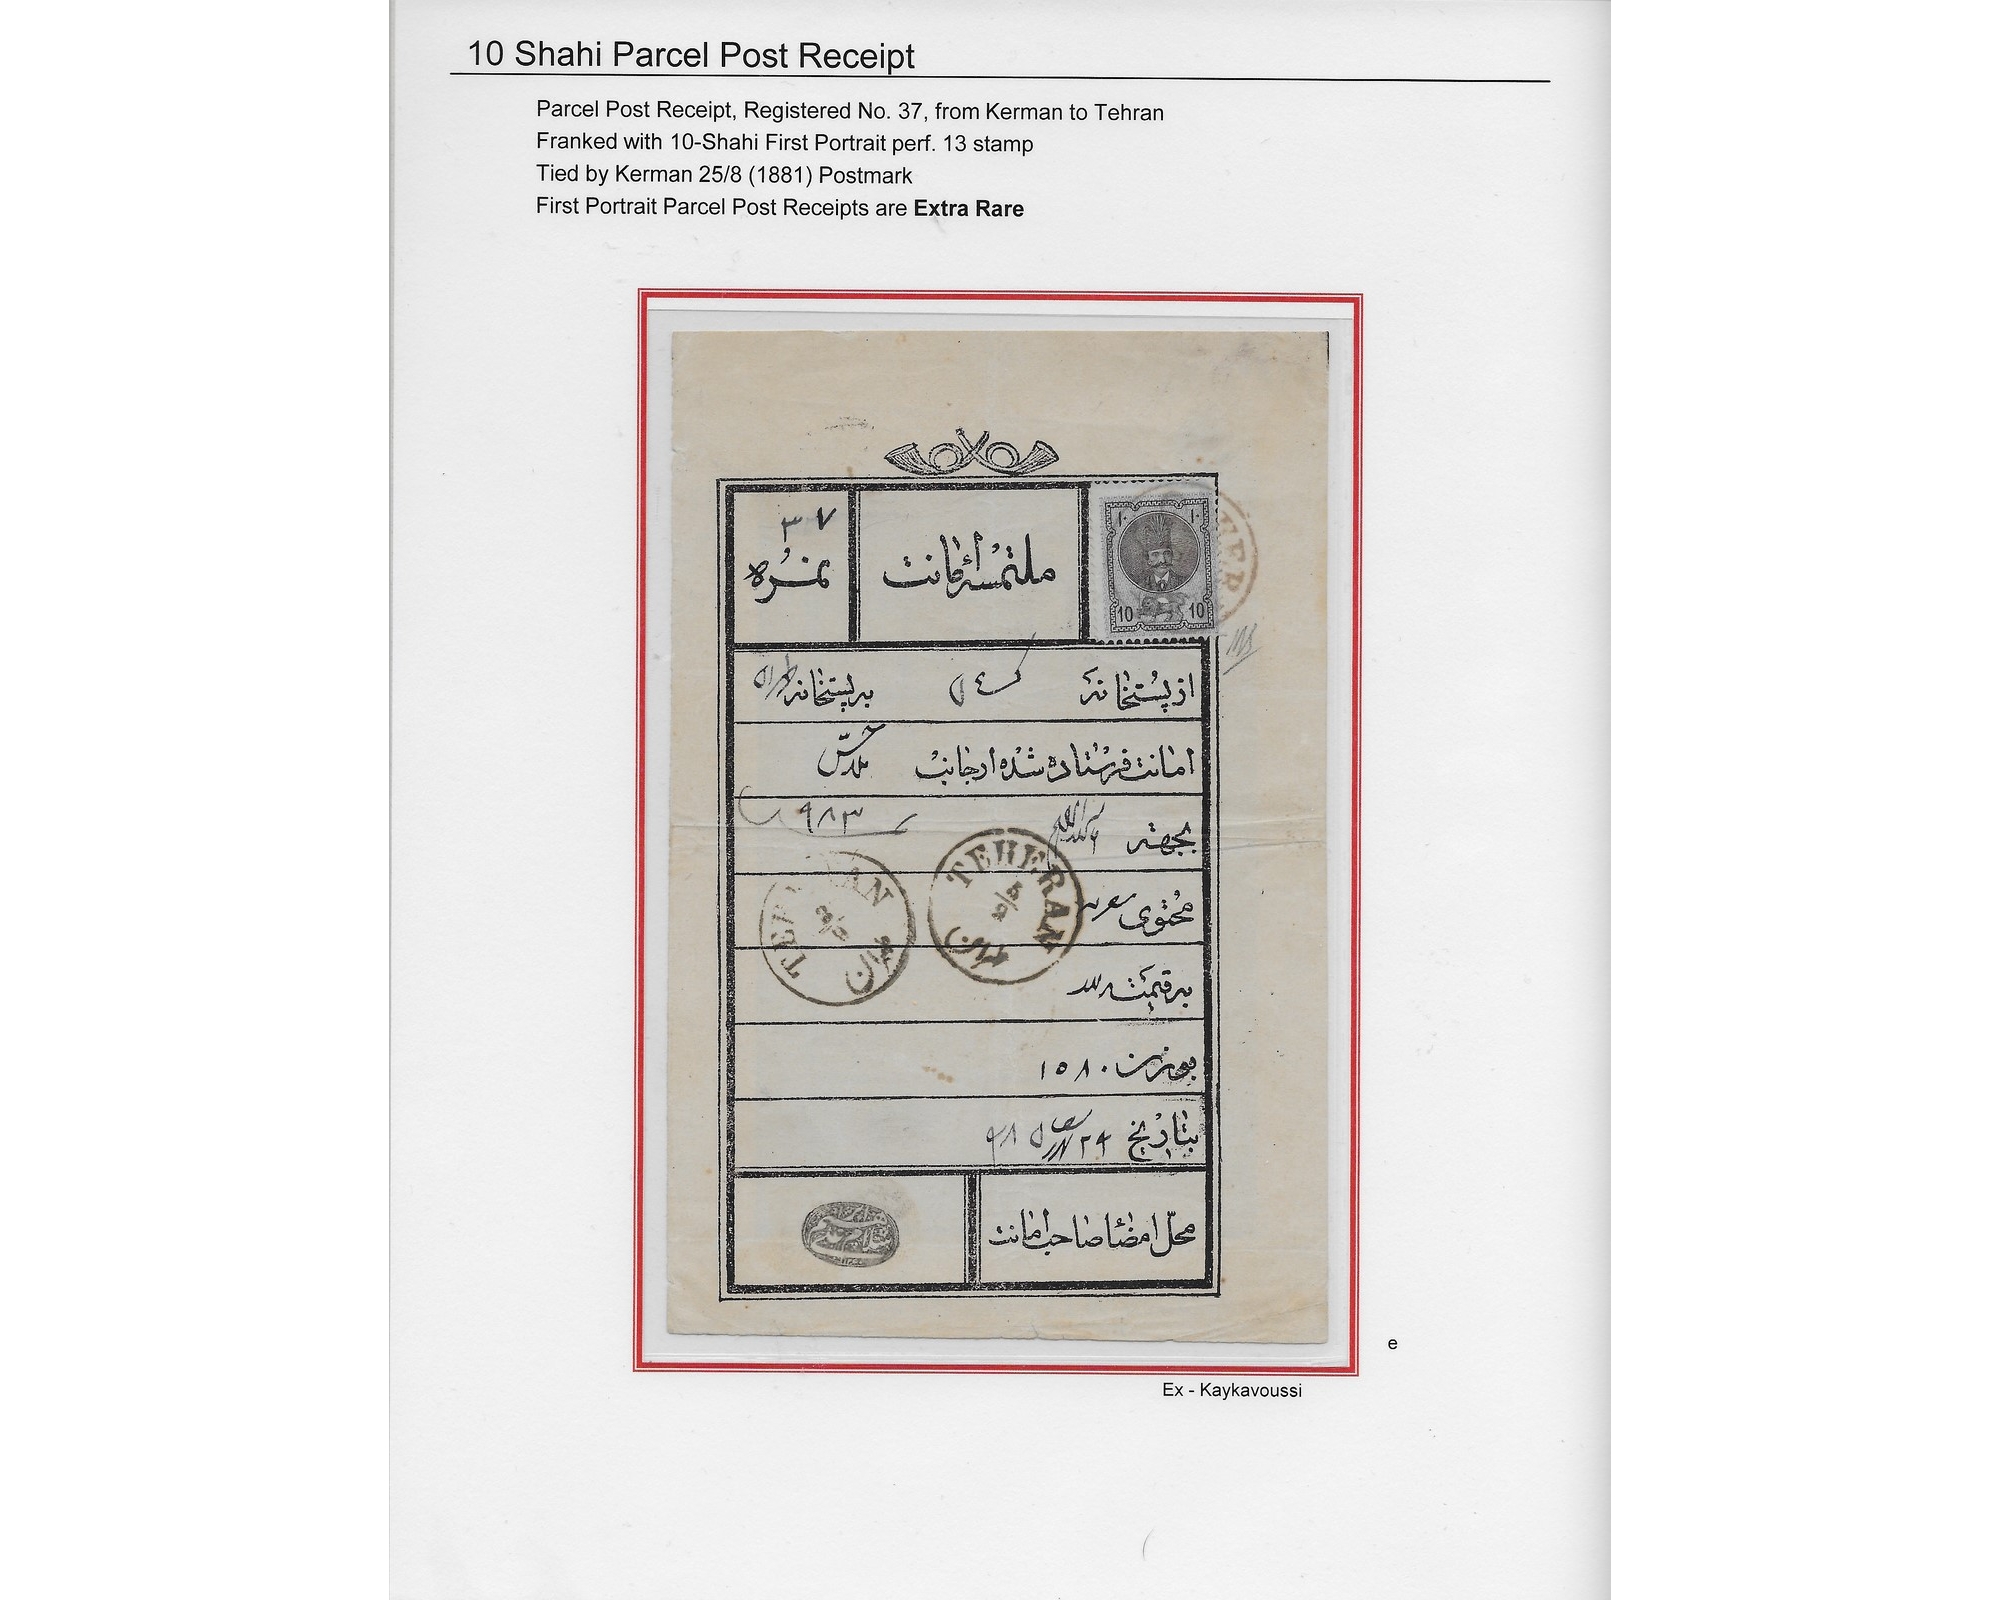 10 Shahi Parcel Post Receipt
Parcel Post Receipt, Registered No. 37, from Kerman to Tehran
Franked with 10-Shahi First Portrait perf. 13 stamp
Tied by Kerman 25/8 (1881) Postmark
First Portrait Parcel Post Receipts are Extra Rare
۳۷
نمره
ملتمسهٔ امانت
۱۰ ۱۰
10 10
از پستخانهٔ به پستخانه طهران
امانت فرستاده شده از جانب
بجهته
۹۸۳
TEHERAN
طهران
TEHERAN
5/9
طهران
محتوی
به قیمت
بوزن ۱۵۸۰
بتاریخ ۲۴
محل امضا صاحب امانت
e
Ex - Kaykavoussi